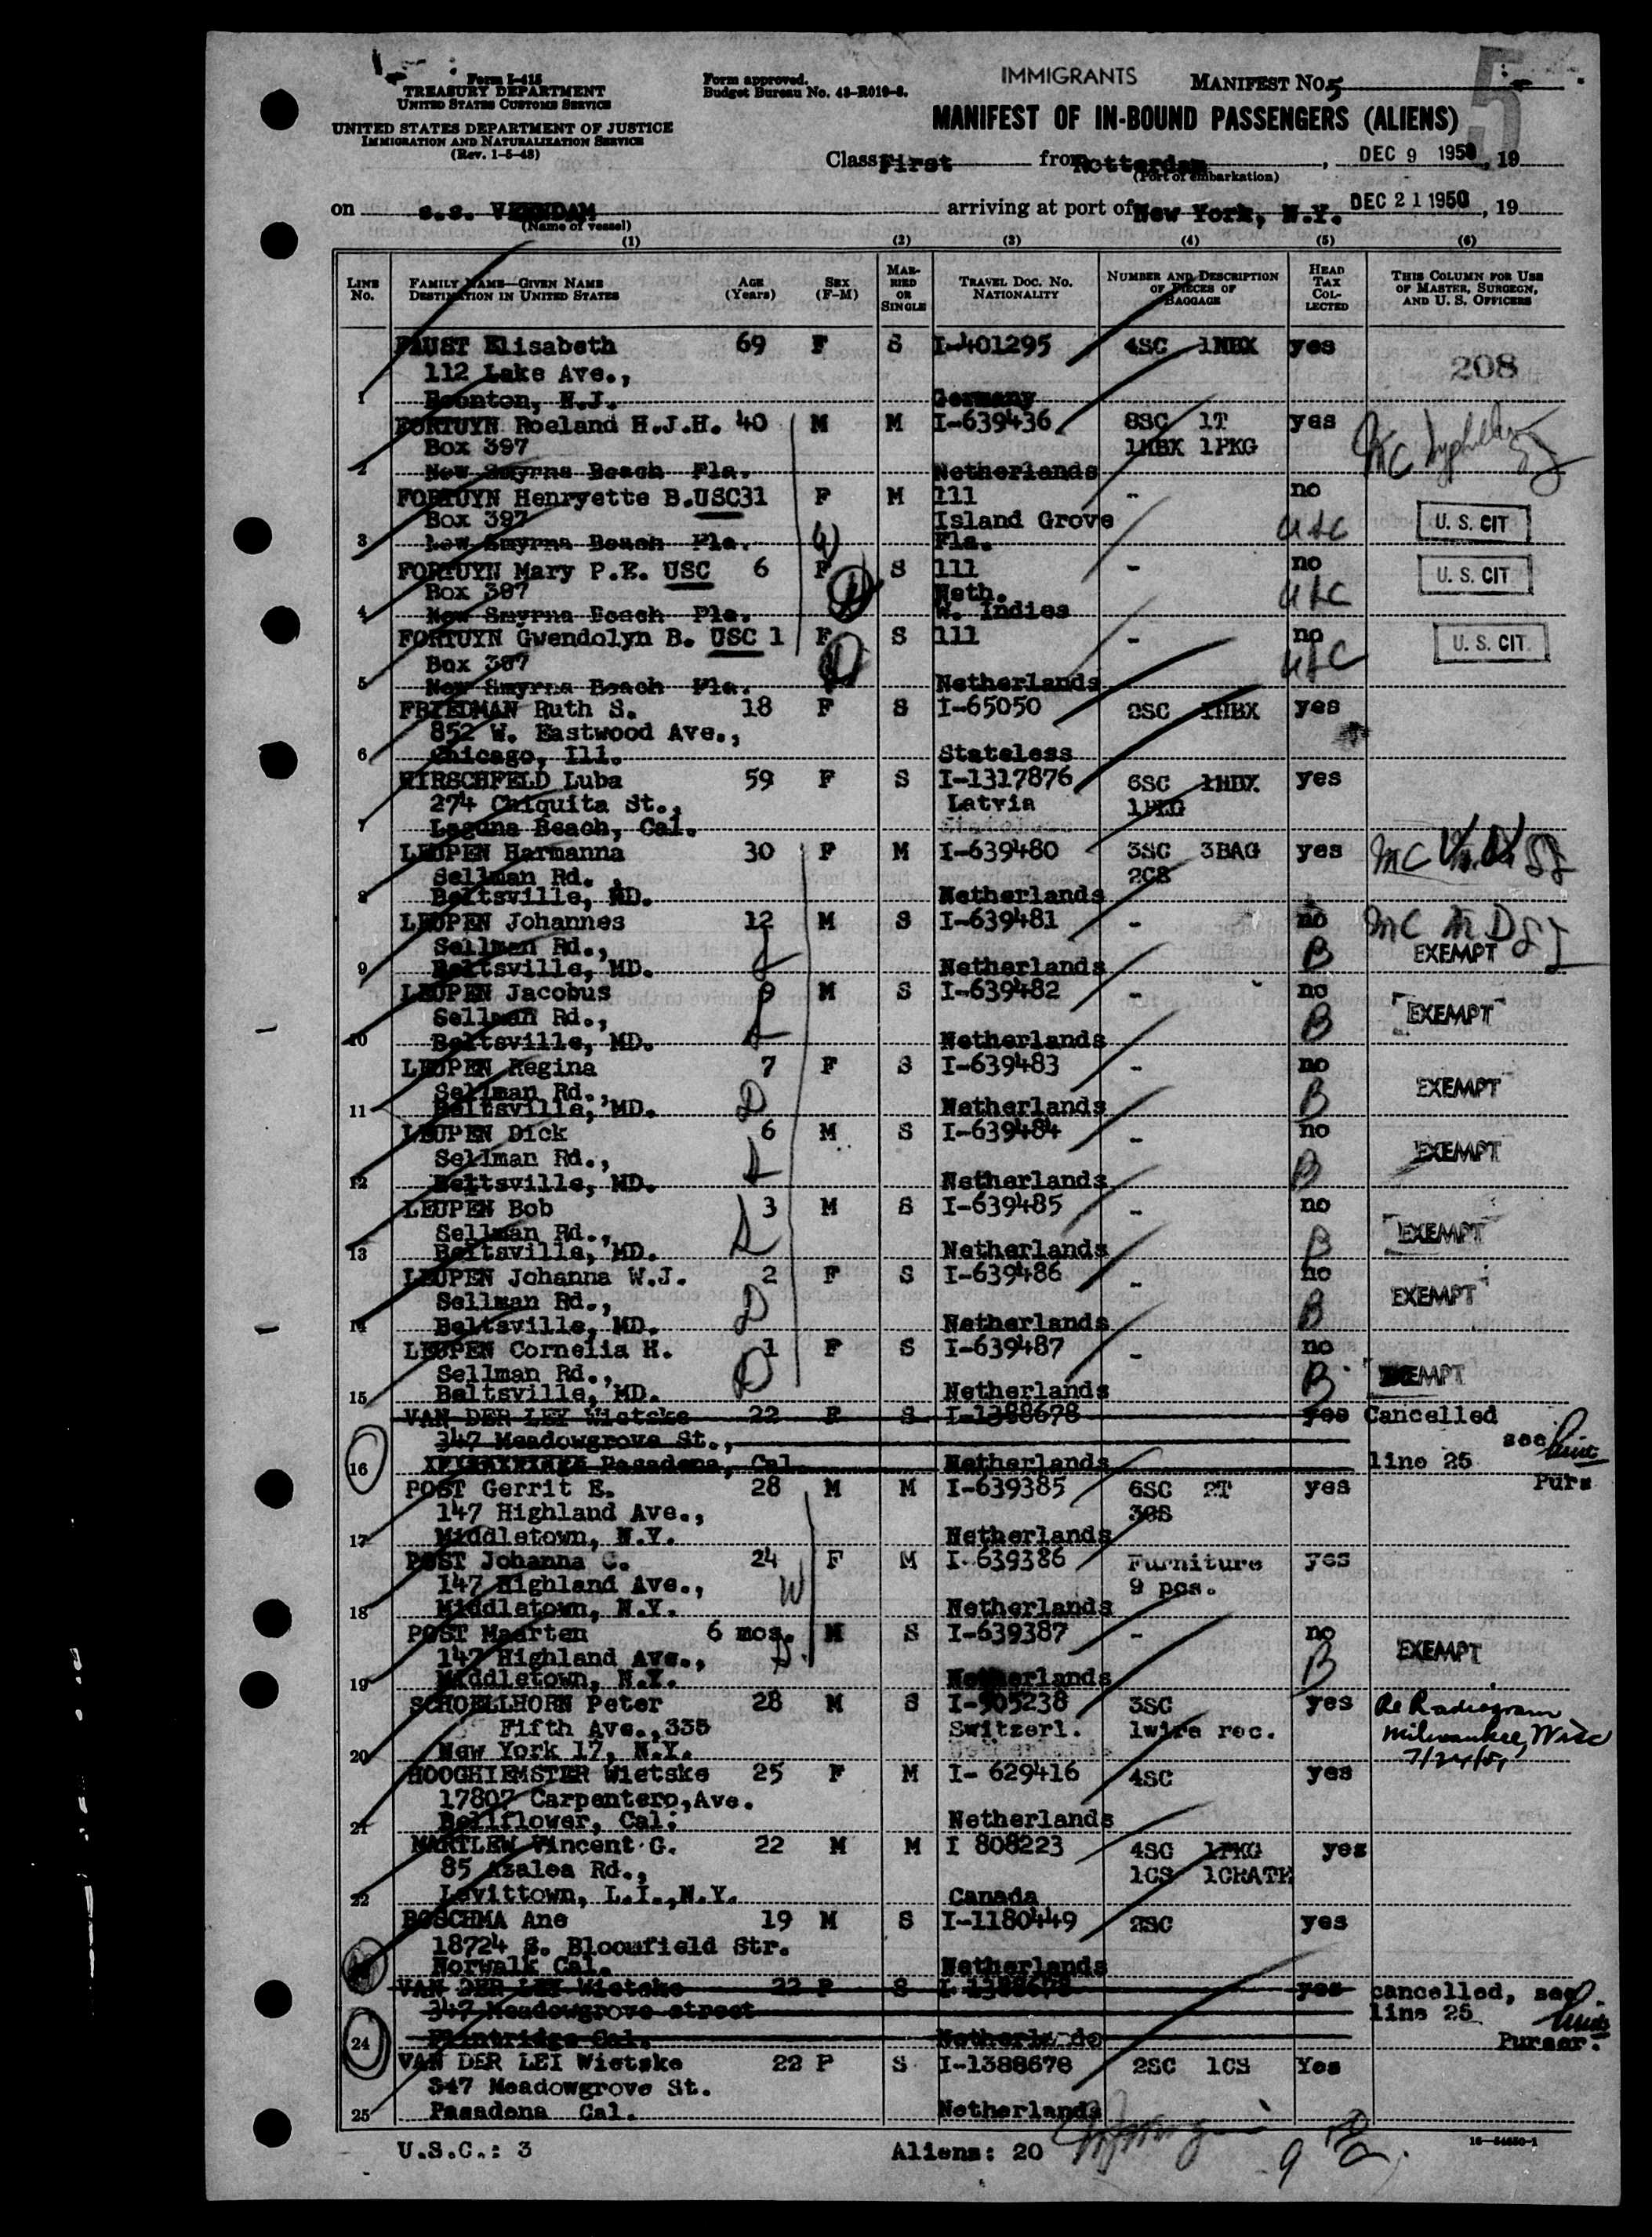 Form I-415
TREASURY DEPARTMENT
UNITED STATES CUSTOMS SERVICE
UNITED STATES DEPARTMENT OF JUSTICE
IMMIGRATION AND NATURALIZATION SERVICE
(Rev. 1-5-48)
Form approved.
Budget Bureau No. 43-R019-3.
IMMIGRANTS
MANIFEST No. 5
5
MANIFEST OF IN-BOUND PASSENGERS (ALIENS)
Class First from Rotterdam, DEC 9 1950, 19
(Port of embarkation)
on s.s. VEENDAM arriving at port of New York, N.Y. DEC 21 1950, 19
(Name of vessel)
(1) (2) (3) (4) (5) (6)
LINE No. FAMILY NAME—GIVEN NAME DESTINATION IN UNITED STATES AGE (Years) SEX (F-M) MARRIED OR SINGLE TRAVEL DOC. NO. NATIONALITY NUMBER AND DESCRIPTION OF PIECES OF BAGGAGE HEAD TAX COLLECTED THIS COLUMN FOR USE OF MASTER, SURGEON, AND U. S. OFFICERS
FAUST Elisabeth 69 F S I-401295 4SC 1HBX yes
112 Lake Ave., 208
1 Boonton, N.J. Germany
FORTUYN Roeland H.J.H. 40 M M I-639436 8SC 1T yes
Box 397 1HBX 1PKG MC
2 New Smyrna Beach Fla. Netherlands
FORTUYN Henryette B. USC 31 F M 111 - no
Box 397 Island Grove USC U. S. CIT
3 New Smyrna Beach Fla. Fla.
FORTUYN Mary P.E. USC 6 F S 111 - no
Box 397 Neth. USC U. S. CIT
4 New Smyrna Beach Fla. W. Indies
FORTUYN Gwendolyn B. USC 1 F S 111 - no
Box 397 USC U. S. CIT.
5 New Smyrna Beach Fla. Netherlands
FRIEDMAN Ruth S. 18 F S I-65050 2SC 1HBX yes
852 W. Eastwood Ave.,
6 Chicago, Ill. Stateless
HIRSCHFELD Luba 59 F S I-1317876 6SC 1HBX yes
274 Chiquita St., Latvia 1PKG
7 Laguna Beach, Cal.
LEUPEN Harmanna 30 F M I-639480 3SC 3BAG yes MC
Sellman Rd. , 2CS
8 Beltsville, MD. Netherlands
LEUPEN Johannes 12 M S I-639481 - no MC
Sellman Rd., B EXEMPT
9 Beltsville, MD. Netherlands
LEUPEN Jacobus 9 M S I-639482 - no
Sellman Rd., B EXEMPT
10 Beltsville, MD. Netherlands
LEUPEN Regina 7 F S I-639483 - no
Sellman Rd., D B EXEMPT
11 Beltsville, MD. Netherlands
LEUPEN Dick 6 M S I-639484 - no
Sellman Rd., B EXEMPT
12 Beltsville, MD. Netherlands
LEUPEN Bob 3 M S I-639485 - no
Sellman Rd., B EXEMPT
13 Beltsville, MD. Netherlands
LEUPEN Johanna W.J. 2 F S I-639486 - no
Sellman Rd., D B EXEMPT
14 Beltsville, MD. Netherlands
LEUPEN Cornelia H. 1 F S I-639487 - no
Sellman Rd., D B EXEMPT
15 Beltsville, MD. Netherlands
VAN DER LEY Wietske 22 F S I-1388678 yes Cancelled
347 Meadowgrove St., see
16 Pasadena, Cal. Netherlands line 25
POST Gerrit E. 28 M M I-639385 6SC 2T yes Purs
147 Highland Ave., 3CS
17 Middletown, N.Y. Netherlands
POST Johanna C. 24 F M I-639386 Furniture yes
147 Highland Ave., W 9 pcs.
18 Middletown, N.Y. Netherlands
POST Maarten 6 mos. M S I-639387 - no
147 Highland Ave., D. B EXEMPT
19 Middletown, N.Y. Netherlands
SCHOELLHORN Peter 28 M S I-905238 3SC yes Re Radiogram
Fifth Ave.,335 Switzerl. 1wire rec. Milwaukee, Wisc
20 New York 17, N.Y.
HOOGHIEMSTER Wietske 25 F M I- 629416 4SC yes
17807 Carpentero,Ave.
21 Bellflower, Cal. Netherlands
MARTLEW Vincent G. 22 M M I 808223 4SC 1PKG yes
85 Azalea Rd., 1CS 1CRATE
22 Levittown, L.I.,N.Y. Canada
BOSCHMA Ane 19 M S I-1180449 2SC yes
18724 S. Bloomfield Str.
Norwalk Cal. Netherlands
VAN DER LEY Wietske 22 F S I-1388678 yes cancelled, see
347 Meadowgrove street line 25
24 Flintridge Cal. Netherlands Purser.
VAN DER LEI Wietske 22 F S I-1388678 2SC 1CS Yes
347 Meadowgrove St.
25 Pasadena Cal. Netherlands
U.S.C.: 3 Aliens: 20 9